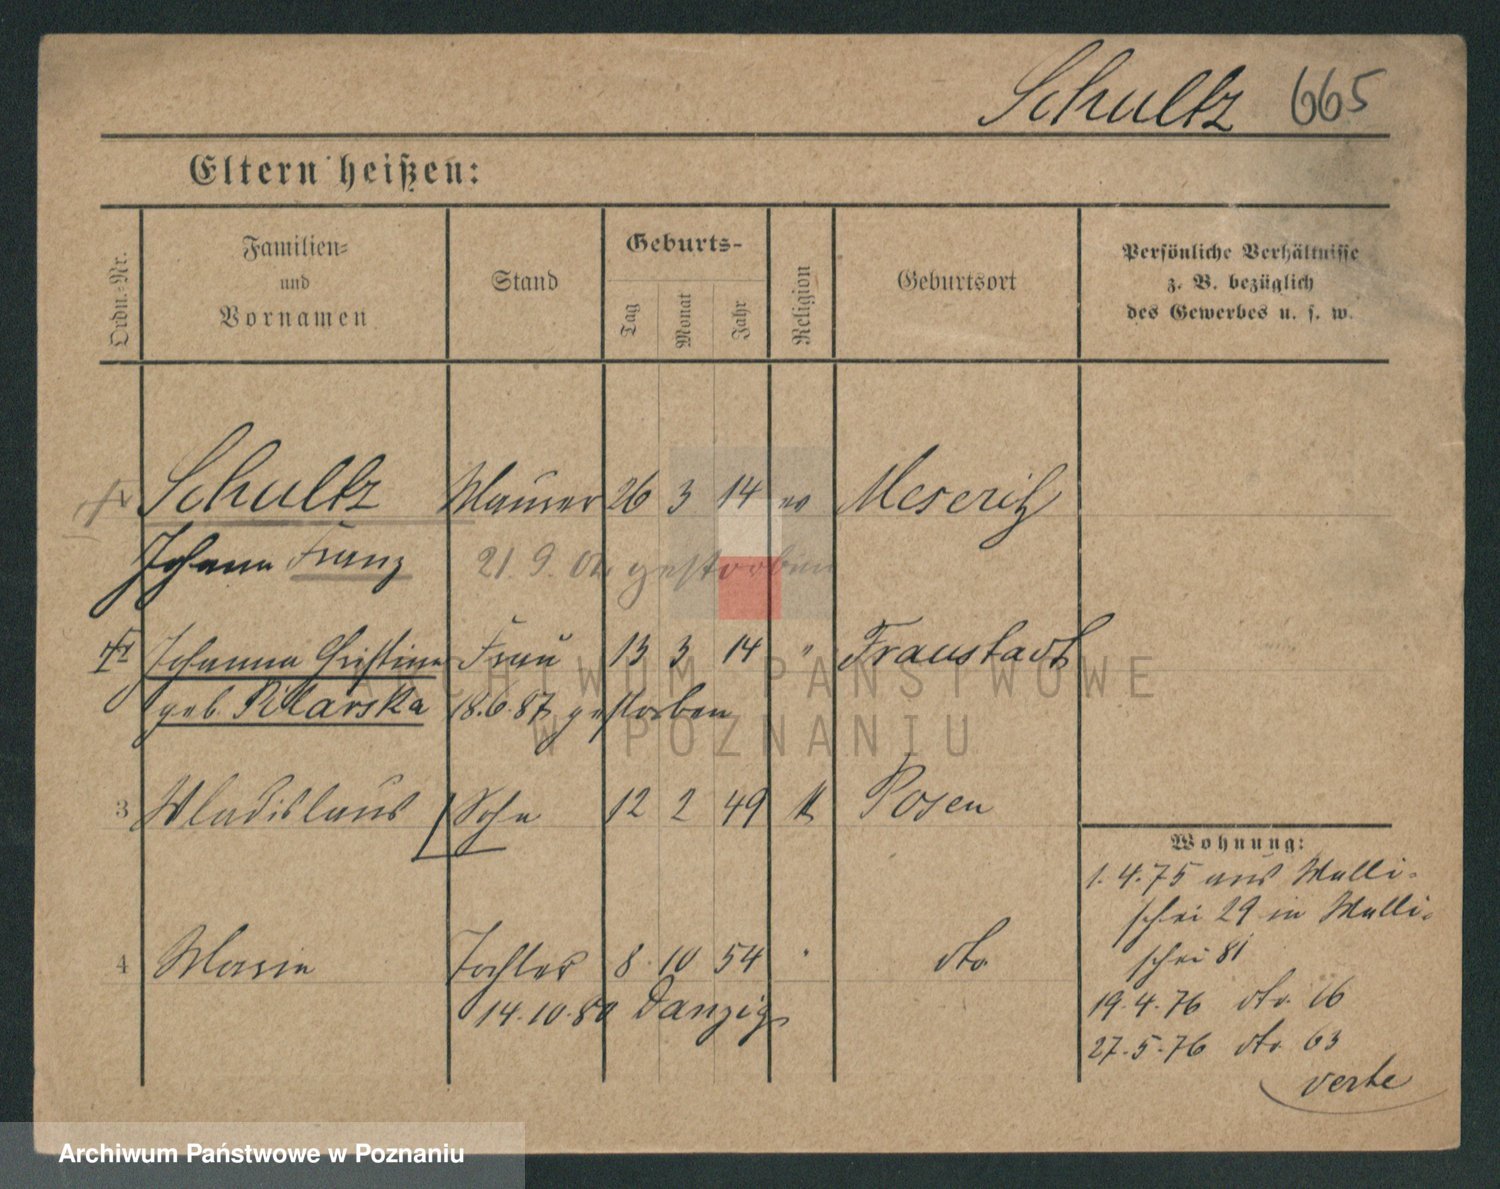 Schultz 665
Eltern heißen:
Ordn.-Nr.
Familien-
und
Vornamen
Stand
Geburts-
Tag
Monat
Jahr
Religion
Geburtsort
Persönliche Verhältnisse
z. B. bezüglich
des Gewerbes u. s. w.
Schultz Maurer 26 3 14 ev Meseritz
Johann Franz 21. 9. gestorben
Johanna Christine Frau 13 3 14 " Fraustadt
geb. 18.6.87 gestorben
3 Wladislaus Sohn 12 2 49 k Posen
4 Marie Tochter 8 10 54 " dto
14.10.80 Danzig
Wohnung:
1.4.75 aus Walli-
schei 29 in Walli-
schei 81
19.4.76 dto 16
27.5.76 dto 63
verte
ARCHIWUM PAŃSTWOWE
W POZNANIU
Archiwum Państwowe w Poznaniu